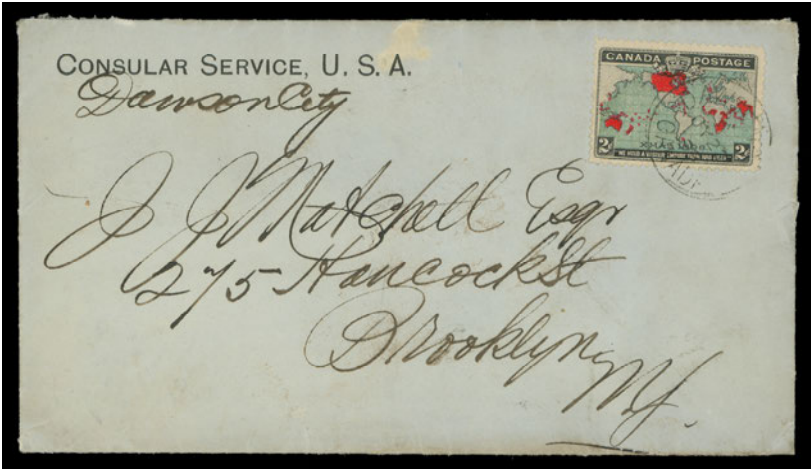 CONSULAR SERVICE, U. S. A.
Dawson City
CANADA POSTAGE
XMAS 1898
2¢ 2¢
"WE HOLD A VASTER EMPIRE THAN HAS BEEN"
J J Matchell Esqr
275 Hancock St
Brooklyn
N.Y.